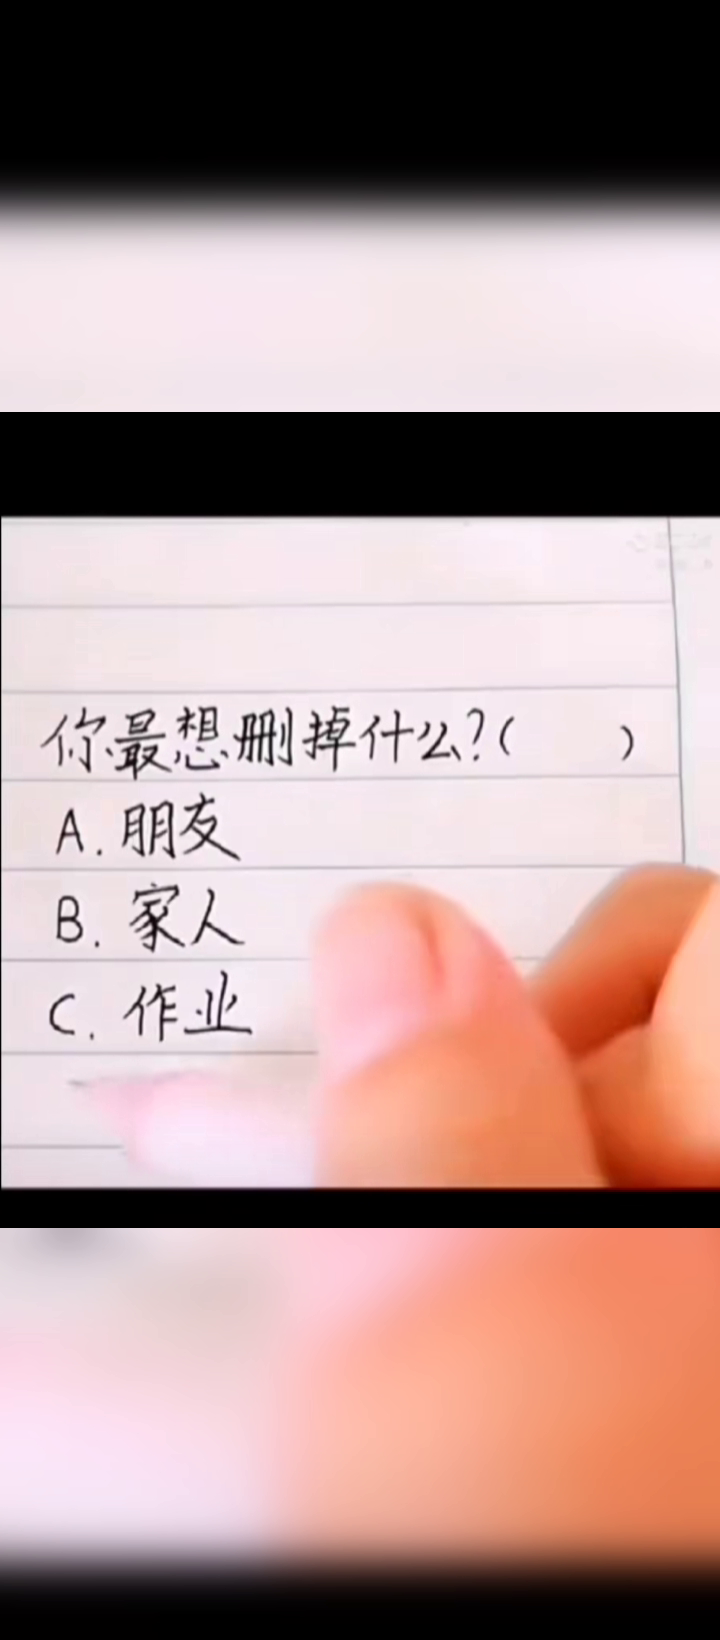 你最想删掉什么?(  )
A. 朋友
B. 家人
C. 作业